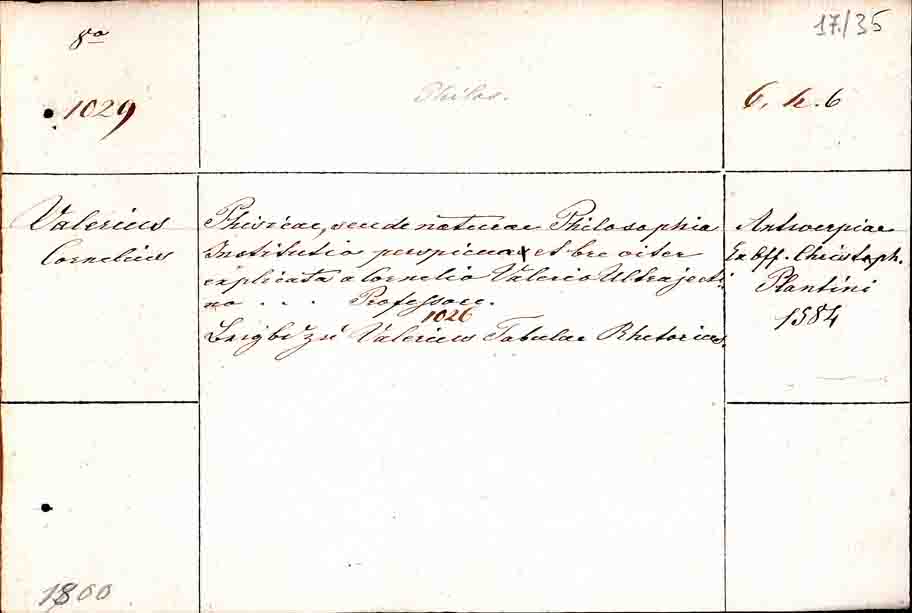 8o
17./35
1029
Philos.
6. h. 6
Valerius
Cornelius
Phisicae, seu de naturae Philosophia
Institutio perspicua et breviter
explicata a Cornelio Valerio Ultrajecti-
no . . . Professore.
1026
Beigb. zu Valerius Tabulae Rhetorices.
Antwerpiae
Ex Off. Christoph.
Plantini
1584
1800